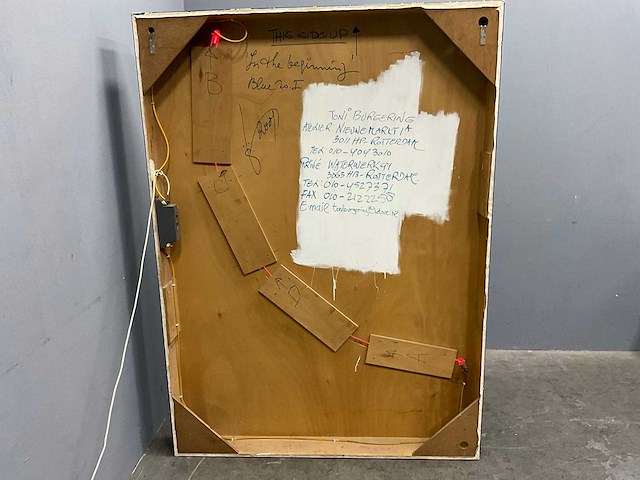 THIS SIDE UP
In the beginning
Blue no. I
2001
B
TONI BURGERING
ATELIER NIEUWEMARKT 1A
3011 HP - ROTTERDAM
TEL 010-4043010
PRIVÉ WATERWERK 41
3063 HB - ROTTERDAM
TEL 010-4527371
FAX 010-2122258
E-mail
C
A